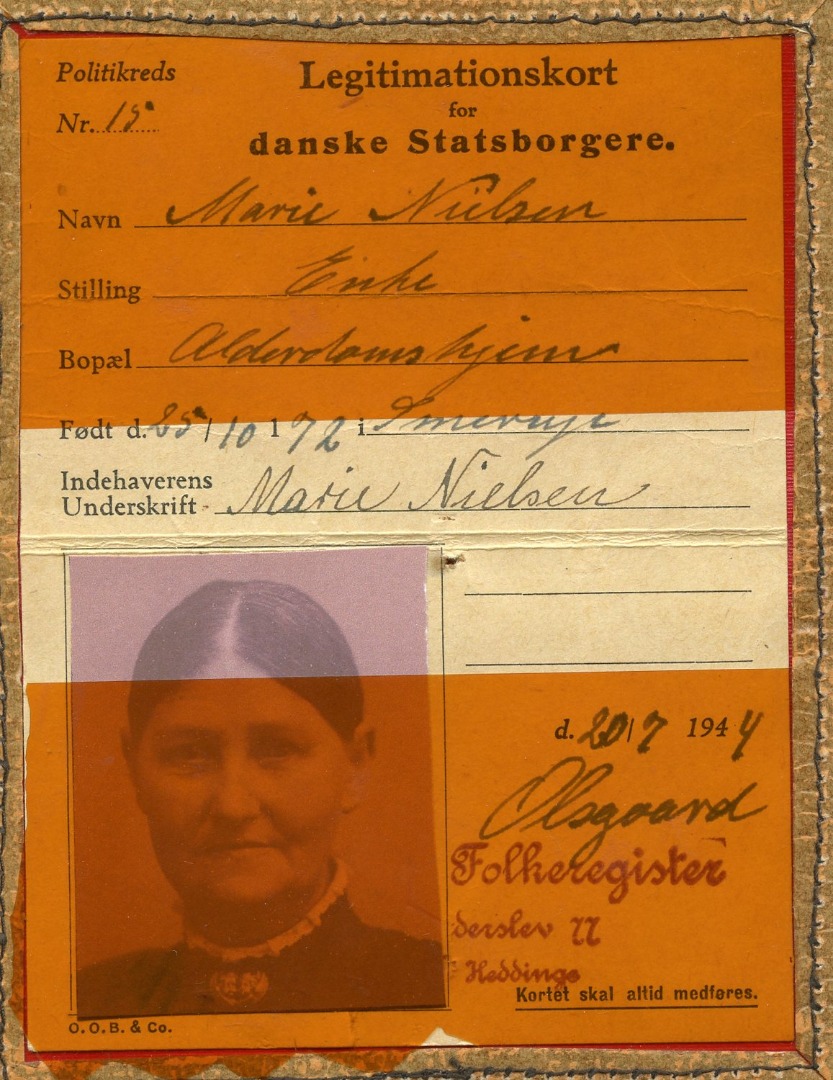 Politikreds
Nr. 15
Legitimationskort
for
danske Statsborgere.
Navn Marie Nielsen
Stilling Enke
Bopæl Alderdomshjem
Født d. 25/10 1 72 i
Indehaverens
Underskrift Marie Nielsen
d. 20/7 1944
Olsgaard
Folkeregister
derslev
Heddinge
Kortet skal altid medføres.
O. O. B. & Co.